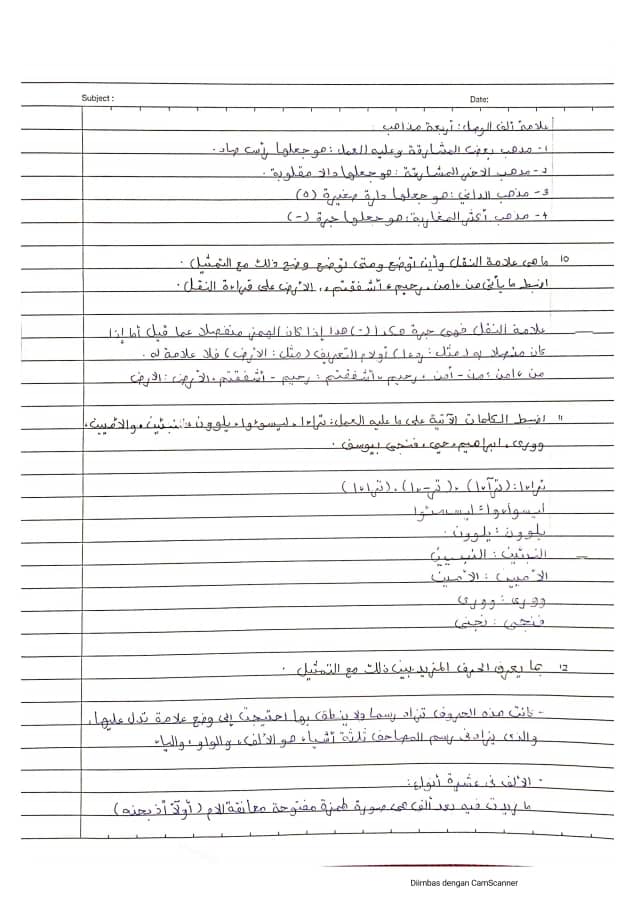 Subject :
Date:
علامة ألف الوصل: أربعة مذاهب :
١- مذهب بعض المشارقة وعليه العمل: هو جعلها رأس صاد.
٢- مذهب الآخر المشارقة: هو جعلها دالا مقلوبة.
٣- مذهب الداني: هو جعلها دارة صغيرة (ه)
٤- مذهب أكثر المغاربة: هو جعلها جرة (-)
١٥ ما هي علامة النقل وأين توضع ومتى توضع وضح ذلك مع التمثيل .
اضبط ما يأتي من ءامن، رحيم ءأشفقتم، الأرض على قراءة النقل.
علامة النقل فهي جرة هكذا (-) هذا إذا كان الهمز منفصلا عما قبل أما إذا
كان متصلا به (مثل: ردءا) أو لام التعريف (مثل: الأرض) فلا علامة له .
من ءامن: من - آمن ، رحيم ءأشفقتم: رحيم - أشفقتم، الأرض: الارض
١١ اضبط الكلمات الآتية على ما عليه العمل: تراءا، ليسوئوا، يلوون، النبيئن، والأميين،
وورى، ابراهيم، حيي، فنجي ابيوسف.
تراءا: (ترآءا)، (تر-ءا)، (تراءا)
ليسوءوا: ليسوءوا
يلوون: يلوون.
النبئين: النبيين
الأميين: الأمين
وورى: وورى
فنجي: نجى
١٢ بما يعرف الحرف المزيد بين ذلك مع التمثيل .
- كانت هذه الحروف تزاد رسما ولا ينطق بها احتيجت إلى وضع علامة تدل عليها،
والذى يزاد فى رسم المصاحف ثلثة أشياء هو الألف، والواو، والياء
· الألف فى عشرة أنواع:
ما زيدت فيه بعد ألف هى صورة لهمزة مفتوحة معانقة لام (أولآ أذبحنه)
Diimbas dengan CamScanner